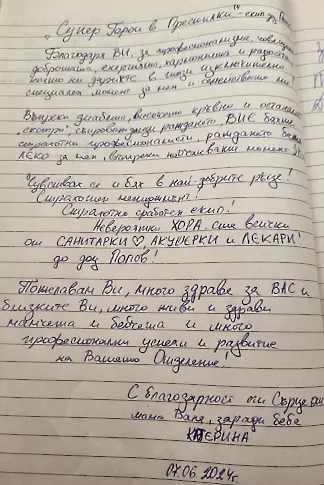 „Супер Герои в Престилки,"- екип д-р Попов
Благодаря Ви, за професионализма, човещината
добротата, енергията, хармонията и радостта
която ми дарихте в този изключително
специален момент за мен и семейството ми
Въпреки диабета, високото кръвно и останали
„екстри", съпровождащи раждането ВИЕ бяхте
страхотни професионалисти, раждането беше
ЛЕКО за мен, въпреки най-чакания момент
Чувствах се и бях в най-добрите ръце!
Страхотен мениджмънт!
Страхотно сработен екип!
Невероятни ХОРА, сте всички
от САНИТАРКИ ♡ АКУШЕРКИ и ЛЕКАРИ!
до доц. Попов!
Пожелавам Ви, много здраве за ВАС и
близките Ви, много живи и здрави
майчета и бебчета и много
професионални успехи и развитие
на Вашето Отделение!
С благодарност от Сърце
мама Ваня, заради бебе
КАТЕРИНА
07.06.2024г.